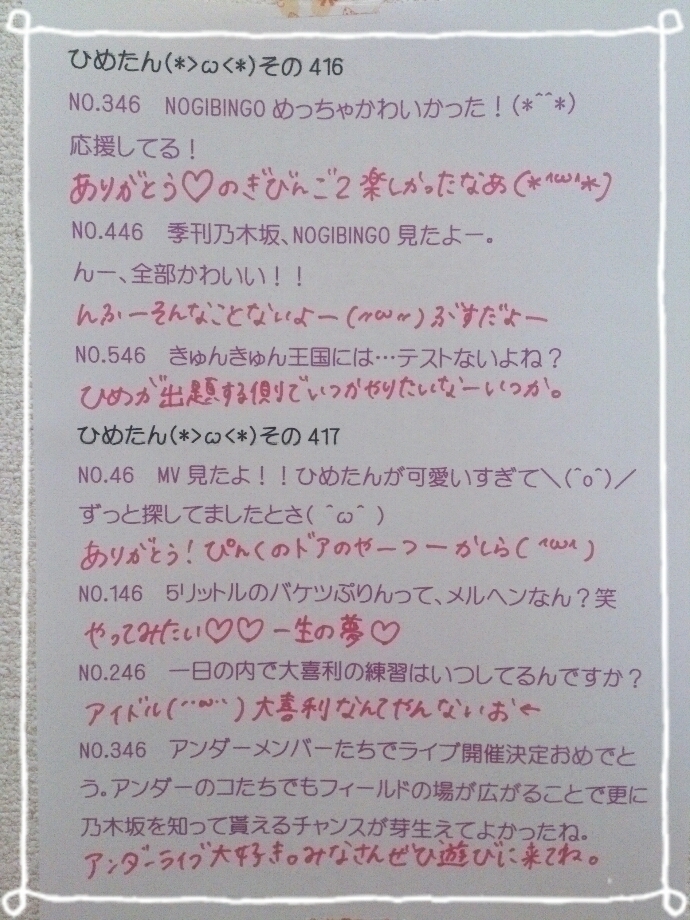 ひめたん(*>ω<*)その416
NO.346 NOGIBINGOめっちゃかわいかった！(*^^*)
応援してる！
ありがとう♡のぎびんご2楽しかったなあ(*^ω^*)
NO.446 季刊乃木坂、NOGIBINGO見たよー。
んー、全部かわいい！！
んふーそんなことないよー(〃ω〃)ぶすだよー
NO.546 きゅんきゅん王国には…テストないよね？
ひめが出題する側でいつかやりたいなーいつか。
ひめたん(*>ω<*)その417
NO.46 MV見たよ！！ひめたんが可愛いすぎて＼(^o^)／
ずっと探してましたとさ( ^ω^ )
ありがとう！ぴんくのドアのやーつーかしら( ^ω^ )
NO.146 5リットルのバケツぷりんって、メルヘンなん？笑
やってみたい♡♡一生の夢♡
NO.246 一日の内で大喜利の練習はいつしてるんですか？
アイドル(¨ω¨)大喜利なんてやんないお←
NO.346 アンダーメンバーたちでライブ開催決定おめでと
う。アンダーのコたちでもフィールドの場が広がることで更に
乃木坂を知って貰えるチャンスが芽生えてよかったね。
アンダーライブ大好き。みなさんぜひ遊びに来てね。